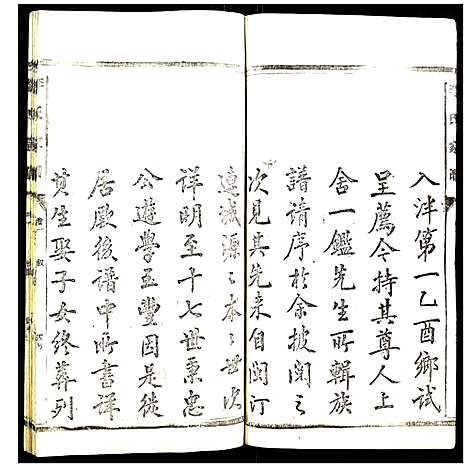 入泮第一乙酉鄉試
呈薦今持其尊人上
舍一鑑先生所輯族
譜請序於余披閱之
次見其先來自閩汀
連城源源本本世次
詳明至十七世秉忠
公遊學至豐因是徙
居厥後譜中所書詳
其生娶子女終葬列